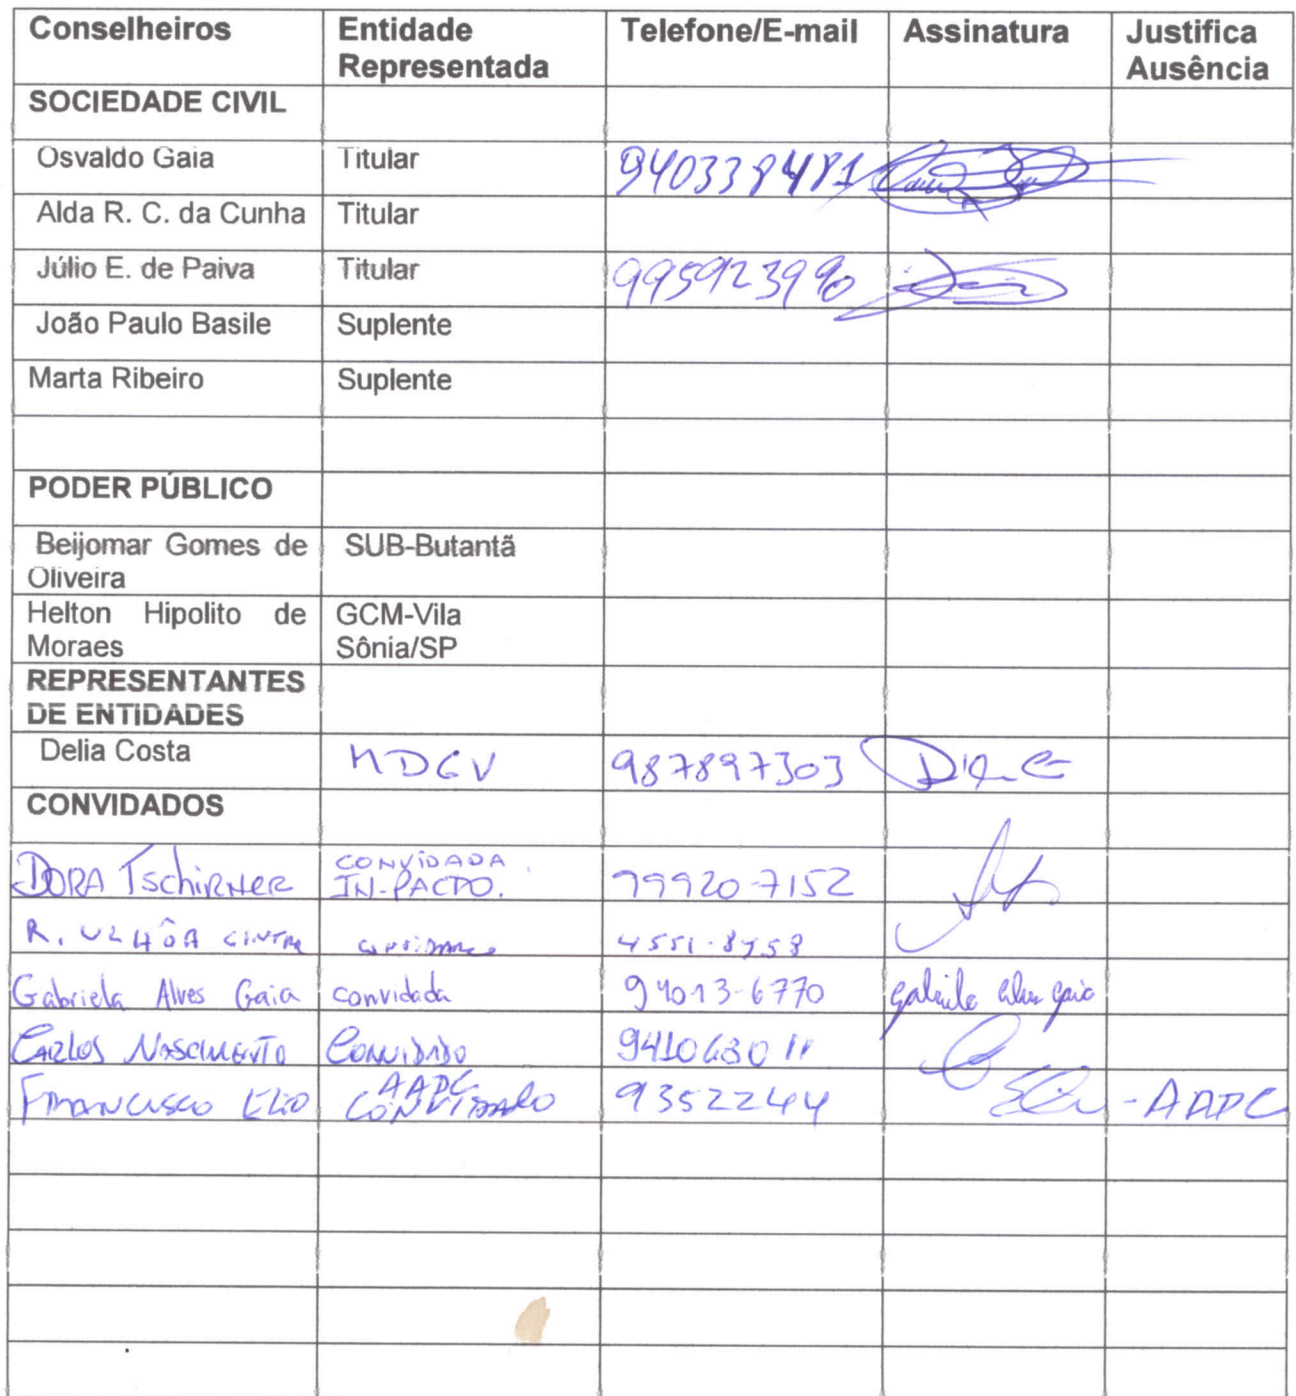 Conselheiros Entidade Representada Telefone/E-mail Assinatura Justifica Ausência
SOCIEDADE CIVIL
Osvaldo Gaia Titular 940338481
Alda R. C. da Cunha Titular
Júlio E. de Paiva Titular 995923990
João Paulo Basile Suplente
Marta Ribeiro Suplente
PODER PÚBLICO
Beijomar Gomes de SUB-Butantã
Oliveira
Helton Hipolito de GCM-Vila
Moraes Sônia/SP
REPRESENTANTES
DE ENTIDADES
Delia Costa MDGV 987897303
CONVIDADOS
DORA TSCHIRNER CONVIDADA IN-PACTO. 99920-7152
R. 4551-8958
Gabriela Alves Gaia convidada 94013-6770 Gabriela Alves Gaia
CARLOS NASCIMENTO CONVIDADO 941063011
FRANCISCO ELIO AAPC CONVIDADO 9352244 - AAPC